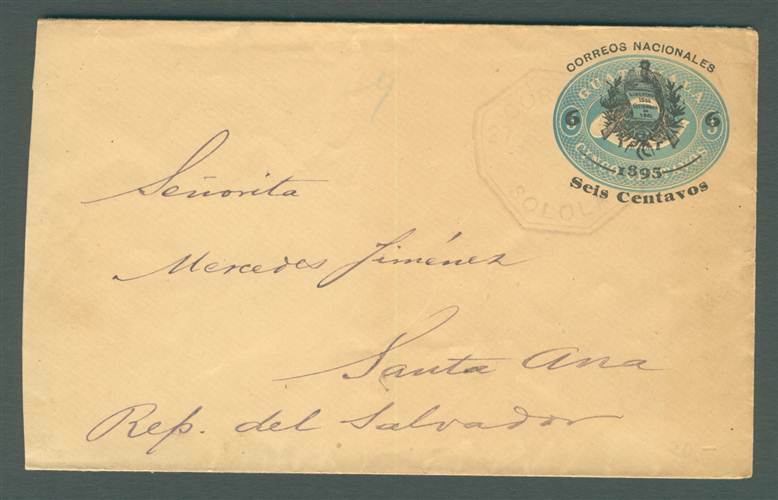 CORREOS NACIONALES
GUATEMALA
6 6
1895
Seis Centavos
SOLOLA
Señorita
Mercedes Jiménez
Santa Ana
Rep. del Salvador